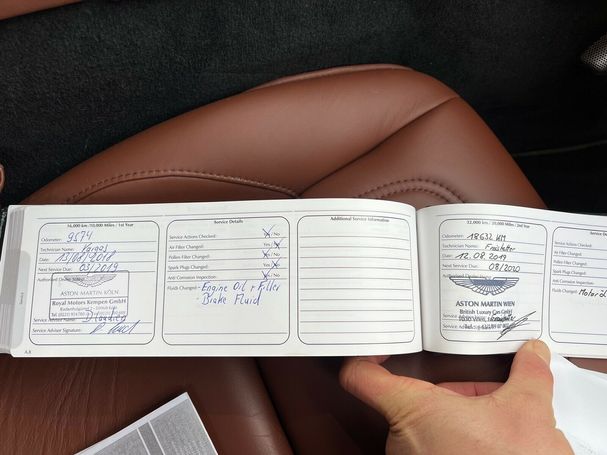 16,000 km /10,000 Miles / 1st Year
Odometer: 9574
Technician Name: Vargas
Date: 13/08/2018
Next Service Due: 03/2019
Authorised Dealer Stamp
ASTON MARTIN KÖLN
Royal Motors Kempen GmbH
Service Advisor Name:
Service Advisor Signature:
A.8
Service Details
Service Actions Checked: Yes / No
Air Filter Changed: Yes / No
Pollen Filter Changed: Yes / No
Spark Plugs Changed: Yes / No
Anti Corrosion Inspection: Yes / No
Fluids Changed: - Engine Oil + Filter
- Brake Fluid
Additional Service Information
32,000 km / 20,000 Miles / 2nd Year
Odometer: 18632 KM
Technician Name:
Date: 12.08.2019
Next Service Due: 08/2020
Authorised
ASTON MARTIN WIEN
British Luxury Cars GmbH
Service
Service Details
Service Actions
Air Filter Changed
Pollen Filter Chang
Spark Plugs Change
Anti Corrosion Ins
Fluids Changed: Motoröl